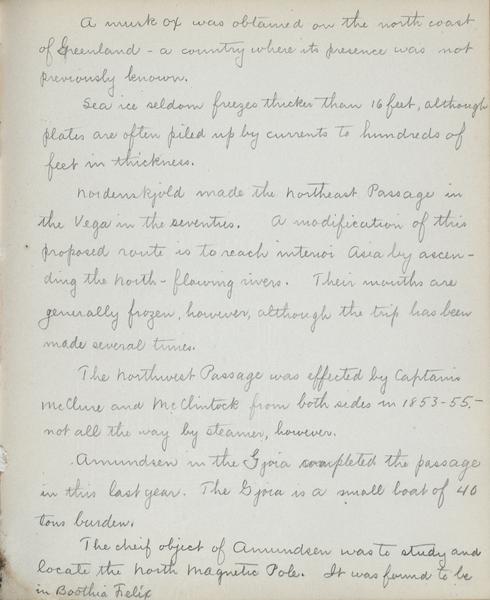 A musk ox was obtained on the north coast
of Greenland - a country where its presence was not
previously known.
Sea ice seldom freezes thicker than 16 feet, although
plates are often piled up by currents to hundreds of
feet in thickness.
Nordenskjold made the Northeast Passage in
the Vega in the seventies. A modification of this
proposed route is to reach interior Asia by ascen-
ding the north-flowing rivers. Their mouths are
generally frozen, however, although the trip has been
made several times.
The Northwest Passage was effected by Captains
McClure and McClintock from both sides in 1853-55,-
not all the way by steamer, however.
Amundsen in the Gjoia completed the passage
in this last year. The Gjoia is a small boat of 40
tons burden.
The cheif object of Amundsen was to study and
locate the North Magnetic Pole. It was found to be
in Boothia Felix